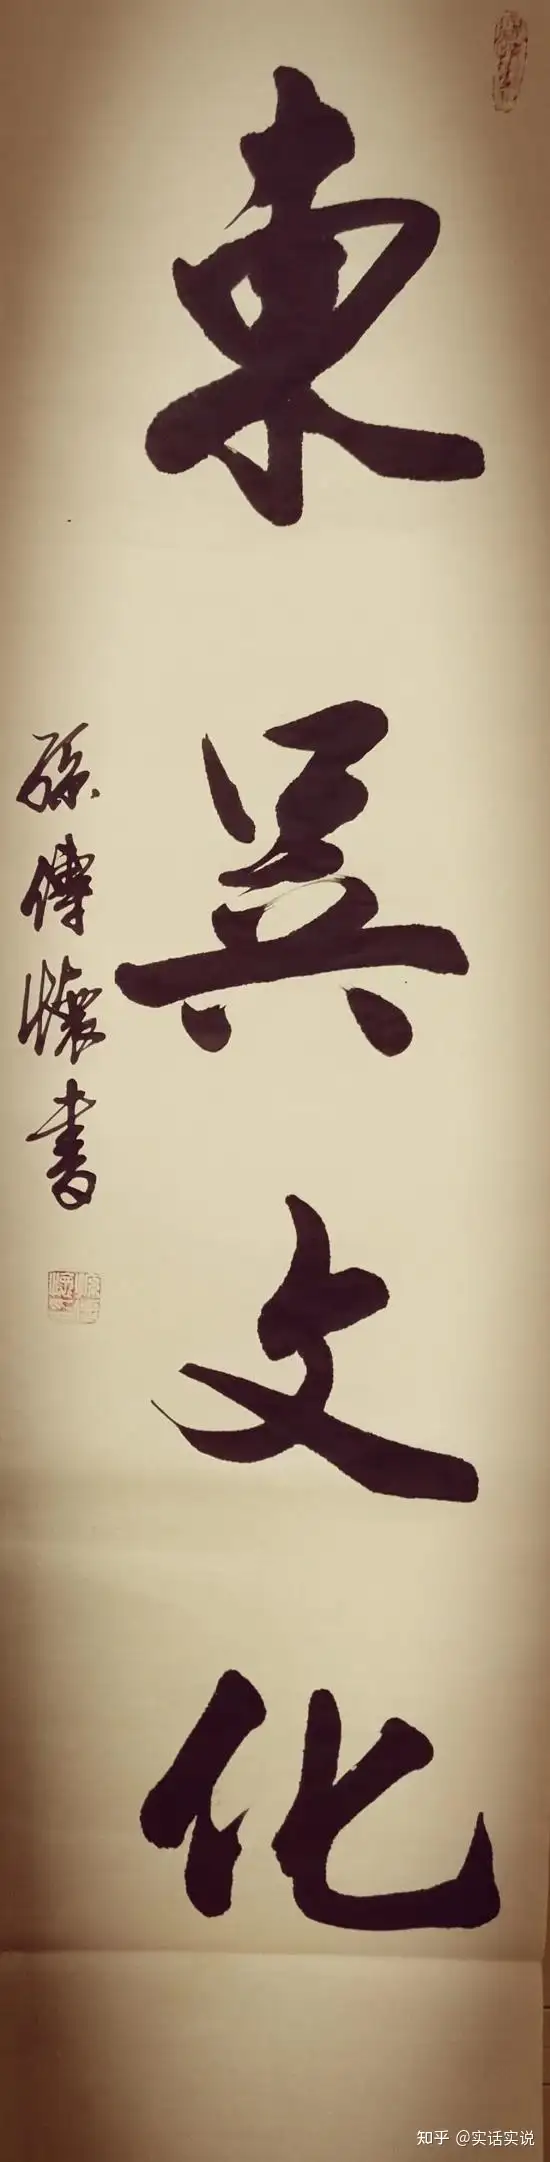 東吴文化
孫傳懷書
知乎 @实话实说